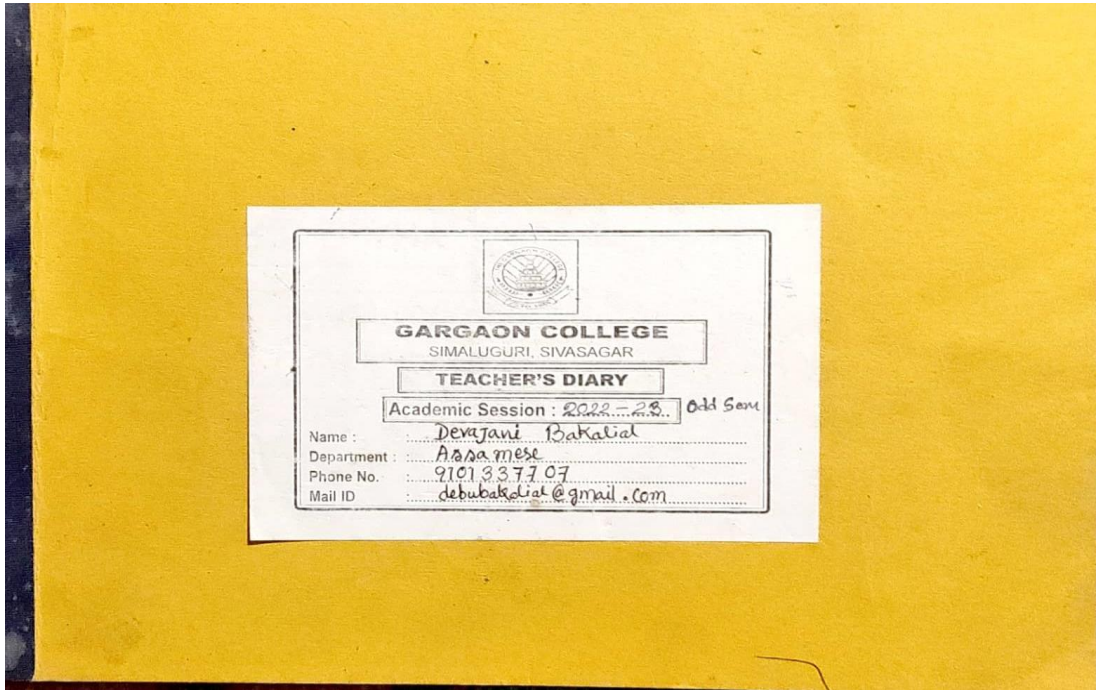 GARGAON COLLEGE
SIMALUGURI, SIVASAGAR
TEACHER'S DIARY
Academic Session : 2022-23 Odd Sem
Name : Devajani Bakalial
Department : Assamese
Phone No. : 9101337707
Mail ID : debubakalial@gmail.com